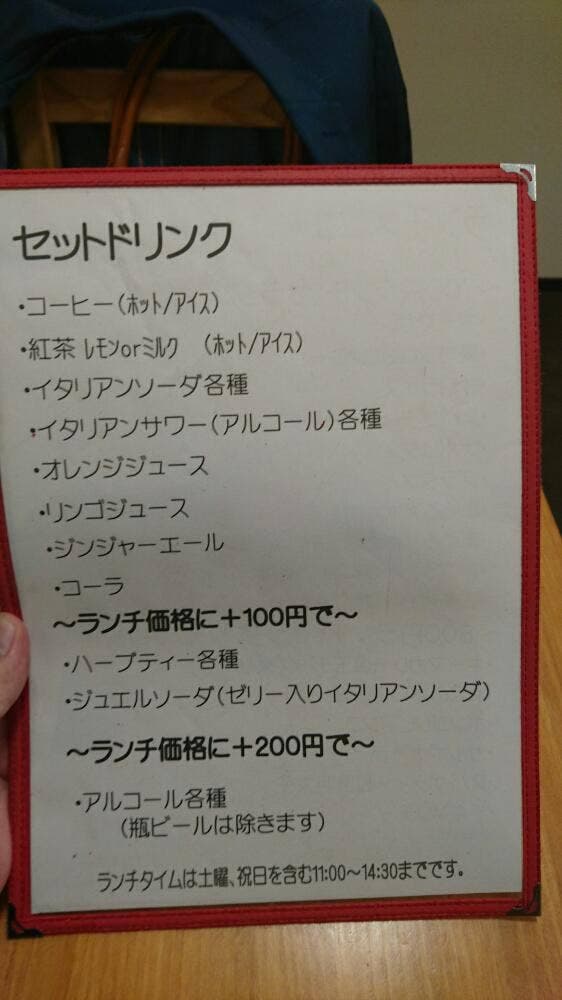 セットドリンク
・コーヒー(ﾎｯﾄ/ｱｲｽ)
・紅茶 ﾚﾓﾝorﾐﾙｸ (ﾎｯﾄ/ｱｲｽ)
・イタリアンソーダ各種
・イタリアンサワー(アルコール)各種
・オレンジジュース
・リンゴジュース
・ジンジャーエール
・コーラ
～ランチ価格に＋100円で～
・ハーブティー各種
・ジュエルソーダ(ゼリー入りイタリアンソーダ)
～ランチ価格に＋200円で～
・アルコール各種
(瓶ビールは除きます)
ランチタイムは土曜、祝日を含む11:00～14:30までです。